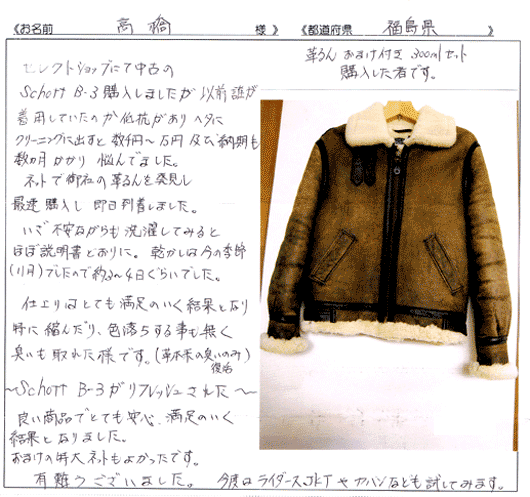 《お名前 高橋 様》 《都道府県 福島県 》
革るん おまけ付き 300mlセット
購入した者です。
セレクトショップにて中古の
Schott B-3 購入しましたが以前誰が
着用していたのか抵抗があり ヘタに
クリーニングに出すと数千円〜万円 及び納期も
数カ月かかり 悩んでました。
ネットで御社の革るんを発見し
最速購入し 即日到着しました。
いざ不安ながらも洗濯してみると
ほぼ説明書どおりに。乾かしは今の季節
(11月)でしたので約3〜4日ぐらいでした。
仕上りはとても満足のいく結果となり
特に縮んだり、色落ちする事も無く
臭いも取れた様です。(革本来の臭いのみ)
復活
〜Schott B-3がリフレッシュされた〜
良い商品でとても安心、満足のいく
結果となりました。
おまけの特大ネットもよかったです。
有難うございました。 今度はライダースJKTやカバンなども試してみます。